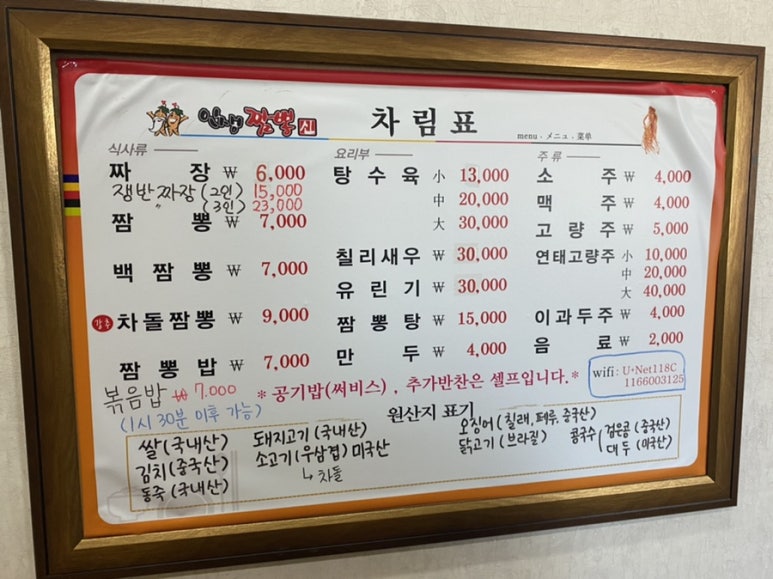 인생짬뽕 신
차 림 표
menu . メニュ . 菜単
식사류
짜 장 ₩ 6,000
쟁반짜장 (2인) 15,000
〃 (3인) 23,000
짬 뽕 ₩ 7,000
백 짬 뽕 ₩ 7,000
강추 차돌짬뽕 ₩ 9,000
짬 뽕 밥 ₩ 7,000
볶음밥 ₩ 7.000
(1시 30분 이후 가능)
요리부
탕 수 육 小 13,000
中 20,000
大 30,000
칠리새우 ₩ 30,000
유 린 기 ₩ 30,000
짬 뽕 탕 ₩ 15,000
만 두 ₩ 4,000
주 류
소 주 ₩ 4,000
맥 주 ₩ 4,000
고 량 주 ₩ 5,000
연태고량주 小 10,000
中 20,000
大 40,000
이과두주 ₩ 4,000
음 료 ₩ 2,000
wifi : U+Net118C
1166003125
* 공기밥(써비스) , 추가반찬은 셀프입니다. *
원산지 표기
쌀 (국내산)
김치 (중국산)
동죽 (국내산)
돼지고기 (국내산)
소고기 (우삼겹) 미국산
↳ 차돌
오징어 (칠레, 페루, 중국산)
닭고기 (브라질)
콩국수 ( 검은콩 (중국산)
대두 (미국산)